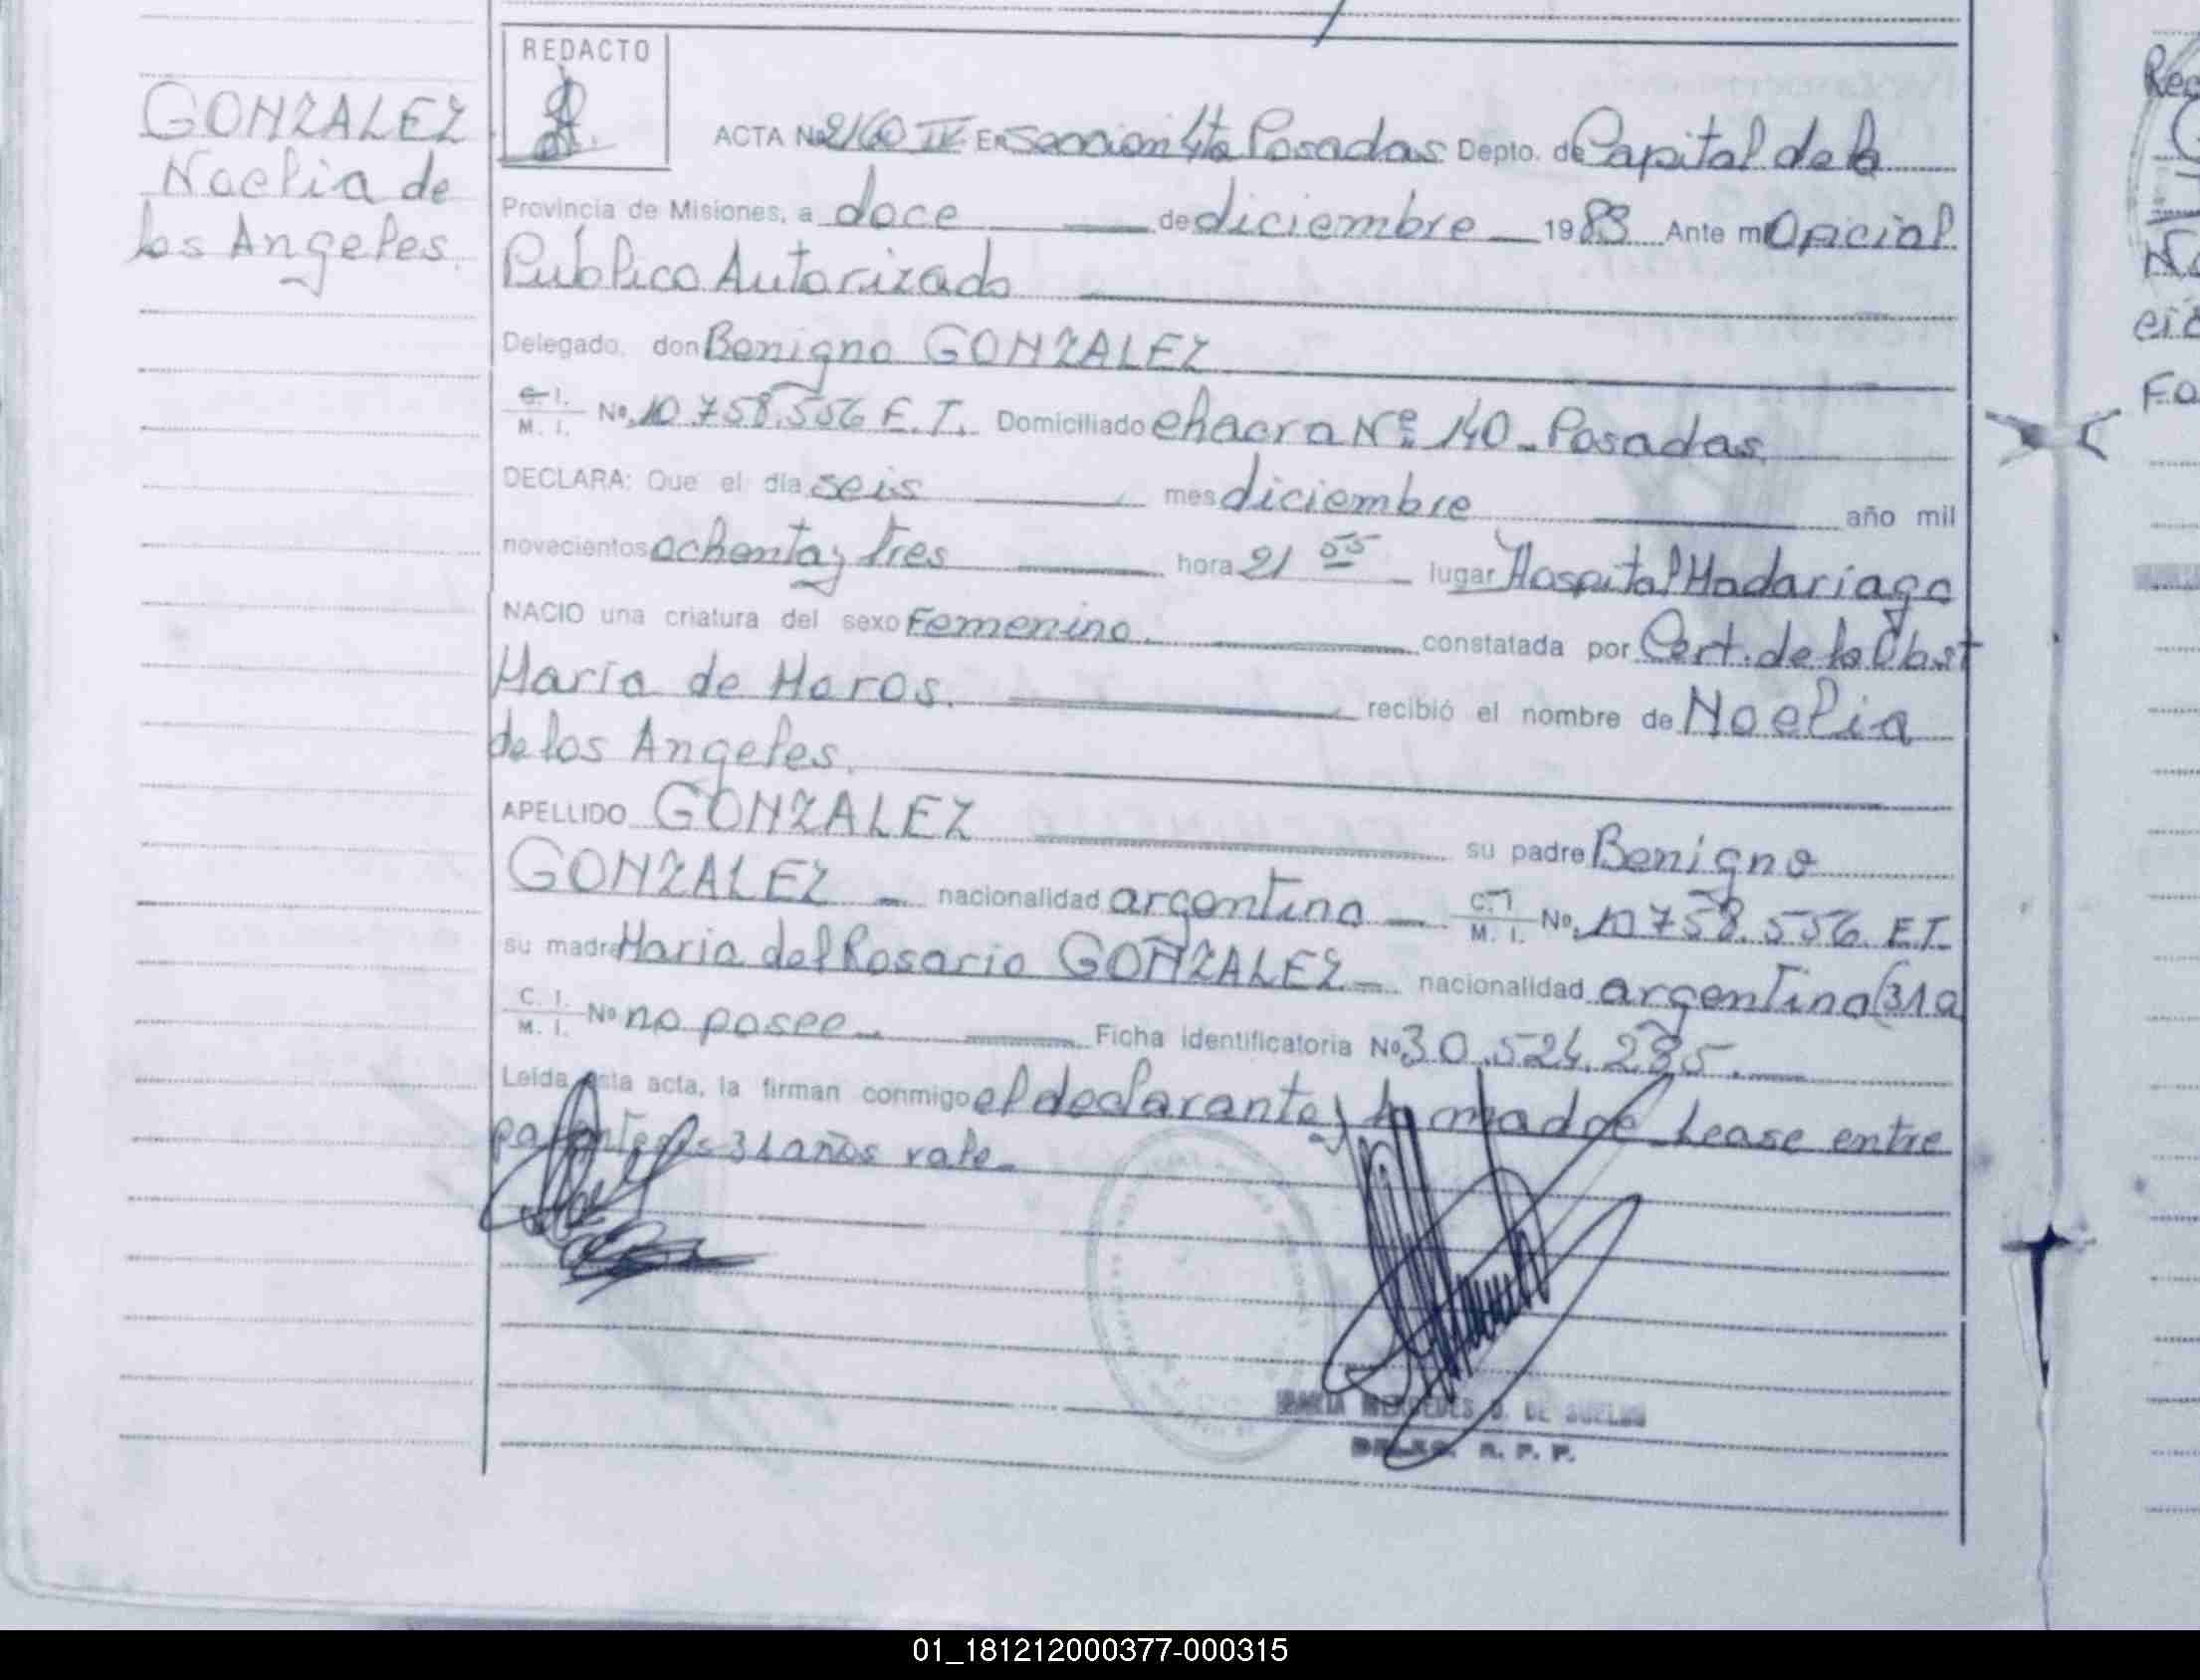 REDACTO
GONZALEZ
Noelia de
los Angeles.
ACTA Nº 2160 IV En Seccion 4ta Posadas Depto. de Capital de la
Provincia de Misiones, a doce de diciembre 1983 Ante mi Oficial
Público Autorizado
Delegado, don Benigno GONZALEZ
C. I.
M. I. Nº 10.758.556 E.T. Domiciliado chacra Nº 140 - Posadas
DECLARA: Que el día seis mes diciembre año mil
novecientos ochenta y tres hora 21 55 lugar Hospital Madariaga
NACIO una criatura del sexo Femenino. constatada por Cert. de la Obst
María de Moros. recibió el nombre de Noelia
de los Angeles.
APELLIDO GONZALEZ su padre Benigno
GONZALEZ nacionalidad argentino C. I.
M. I. Nº 10.758.556 E.T.
su madre Maria del Rosario GONZALEZ nacionalidad argentina (31 a
C. I.
M. I. Nº no posee Ficha identificatoria Nº 30.524.285.
Leida esta acta, la firman conmigo el declarante y la madre Lease entre
parentesis 31 años vale
MARIA MERCEDES DE
R. P. P.
Rec
Na
Fo
01_181212000377-000315